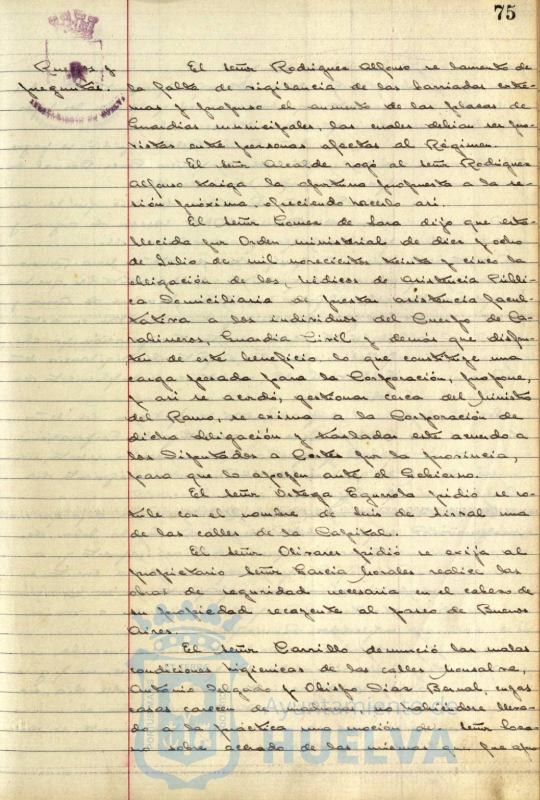 75
Ruegos y
preguntas.
AYUNTAMIENTO DE HUELVA
El señor Rodriguez Alfonso se lamentó de
la falta de vigilancia de las barriadas extre-
mas y propuso el aumento de las plazas de
Guardias municipales, las cuales debian ser pro-
vistas entre personas afectas al Régimen.
El señor Alcalde rogó al señor Rodriguez
Alfonso traiga la oportuna propuesta a la se-
sión próxima, ofreciendo hacerlo asi.
El señor Gomez de Lara dijo que esta-
blecida por Orden ministerial de diez y ocho
de Julio de mil novecientos treinta y cinco la
obligación de los Médicos de Asistencia Públi-
ca Domiciliaria de prestar asistencia facul-
tativa a los individuos del Cuerpo de Ca-
rabineros, Guardia Civil y demás que disfru-
ten de este beneficio, lo que constituye una
carga pesada para la Corporación, propone,
y asi se acordó, gestionar cerca del Ministro
del Ramo, se exima a la Corporación de
dicha obligación y trasladar este acuerdo a
los Diputados a Cortes por la provincia,
para que lo apoyen ante el Gobierno.
El señor Ortega Egurrola pidió se ro-
tule con el nombre de Luis de Sirval una
de las calles de la Capital.
El señor Olivares pidió se exija al
propietario señor Garcia Morales realice las
obras de seguridad necesaria en el cabezo de
su propiedad recayente al paseo de Buenos
Aires.
El señor Carrillo denunció las malas
condiciones higienicas de las calles Monsalve,
Antonio Delgado y Obispo Diaz Bernal, cuyas
casas carecen de
do a la práctica una moción del señor Loza-
no sobre acerado de las mismas que fue apro
Ayuntamiento de
HUELVA